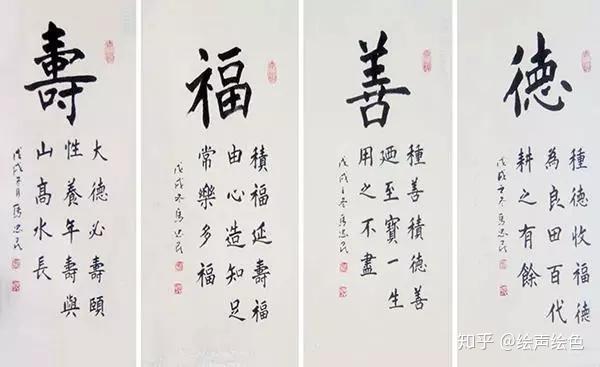 德
種德收福德
為良田百代
耕之有餘
戊戌冬馬忠民
善
種善積德善
廼至寶一生
用之不盡
戊戌冬馬忠民
福
積福延壽福
由心造知足
常樂多福
戊戌冬馬忠民
壽
大德必壽頤
性養年壽與
山高水長
戊戌月馬忠民
知乎 @绘声绘色